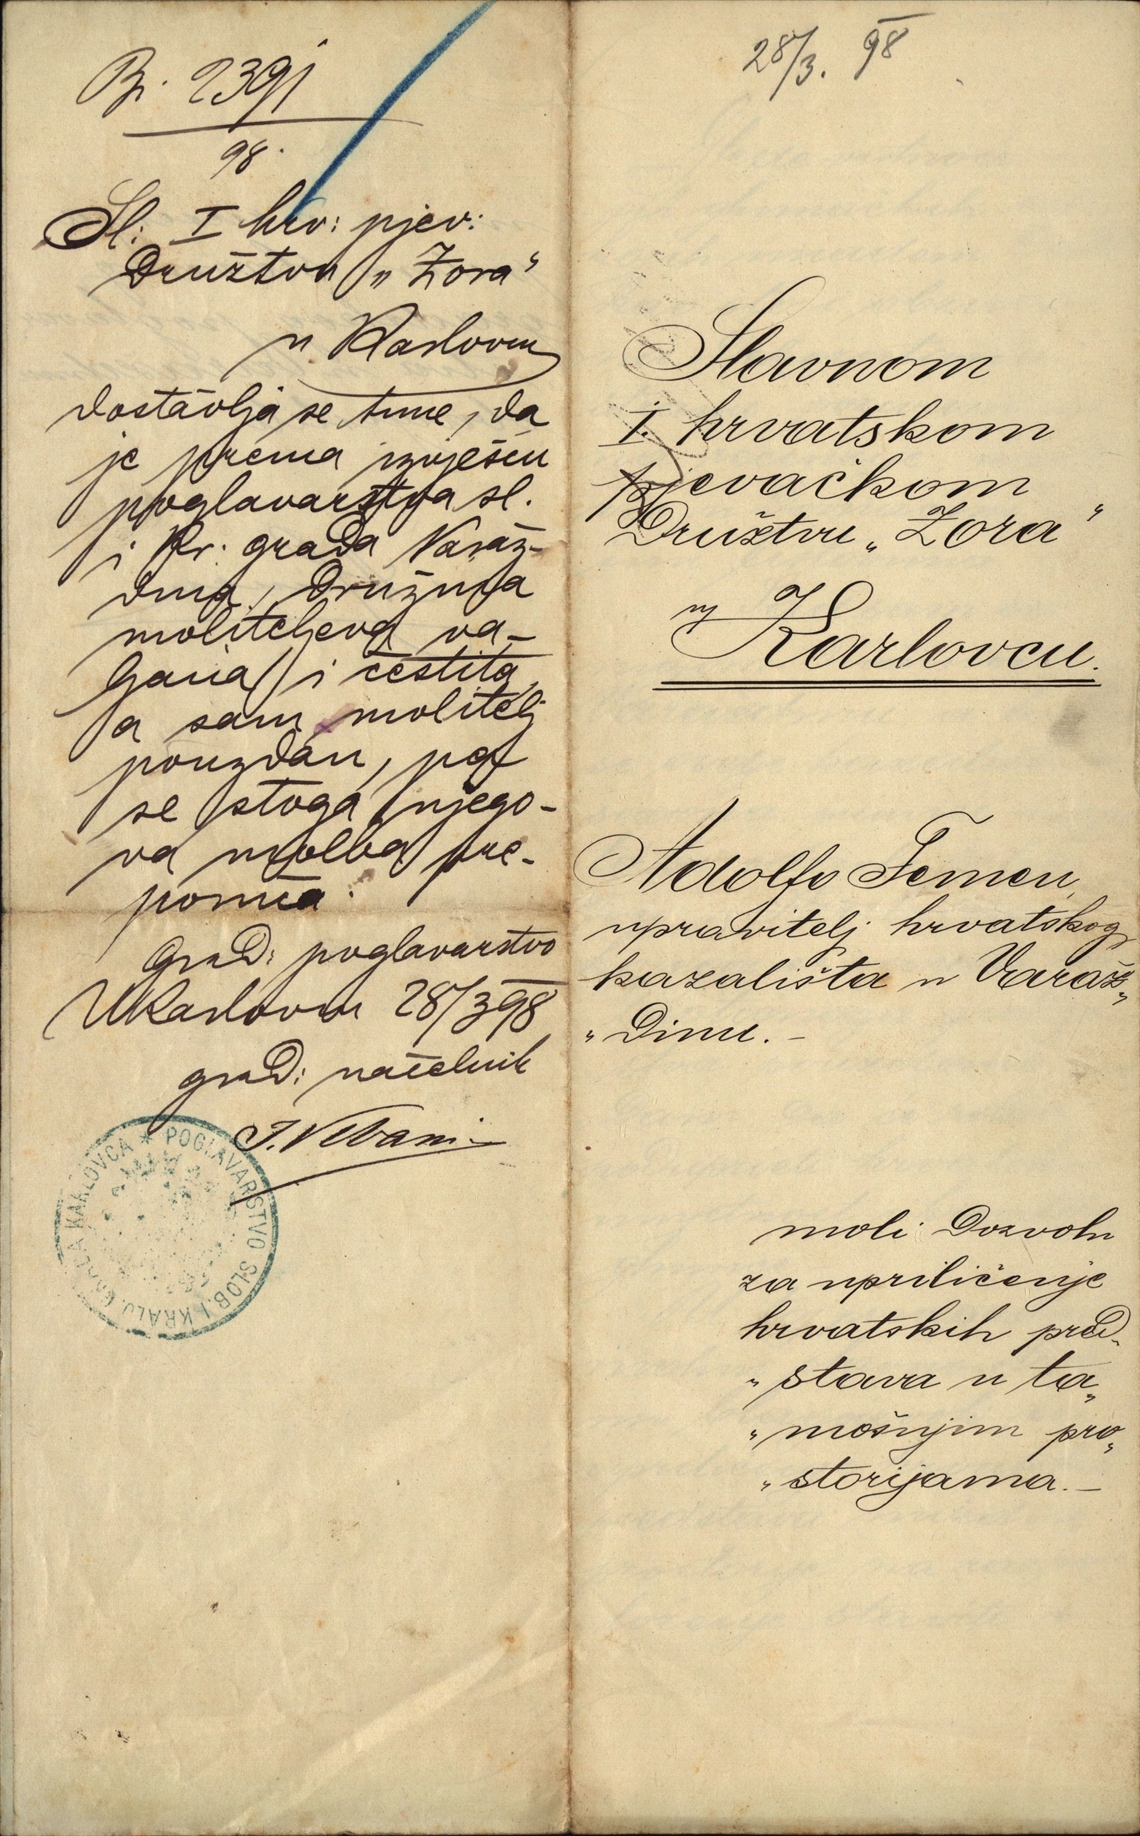 Br. 2391
98.
Sl: I hrv: pjev:
Družtvu „Zora"
u Karlovcu
dostavlja se time, da
je prema izvješću
poglavarstva sl.
i kr. grada Varaž-
dina, družina
moliteljeva va-
ljana i čestita,
a sam molitelj
pouzdan, pa
se stoga njego-
va molba pre-
poruča.
Grad: poglavarstvo
U Karlovcu 28/3 98
grad: načelnik
POGLAVARSTVO SLOB. I KRALJ. GRADA KARLOVCA
28/3. 98
Slavnom
I. hrvatskom
pjevačkom
Družtvu „Zora"
u
Karlovcu.
Adolfo
upravitelj hrvatskog
kazališta u Varaž„
„dinu. –
moli dozvolu
za upriličenje
hrvatskih pred„
„stava u ta„
„mošnjim pro„
„storijama. –